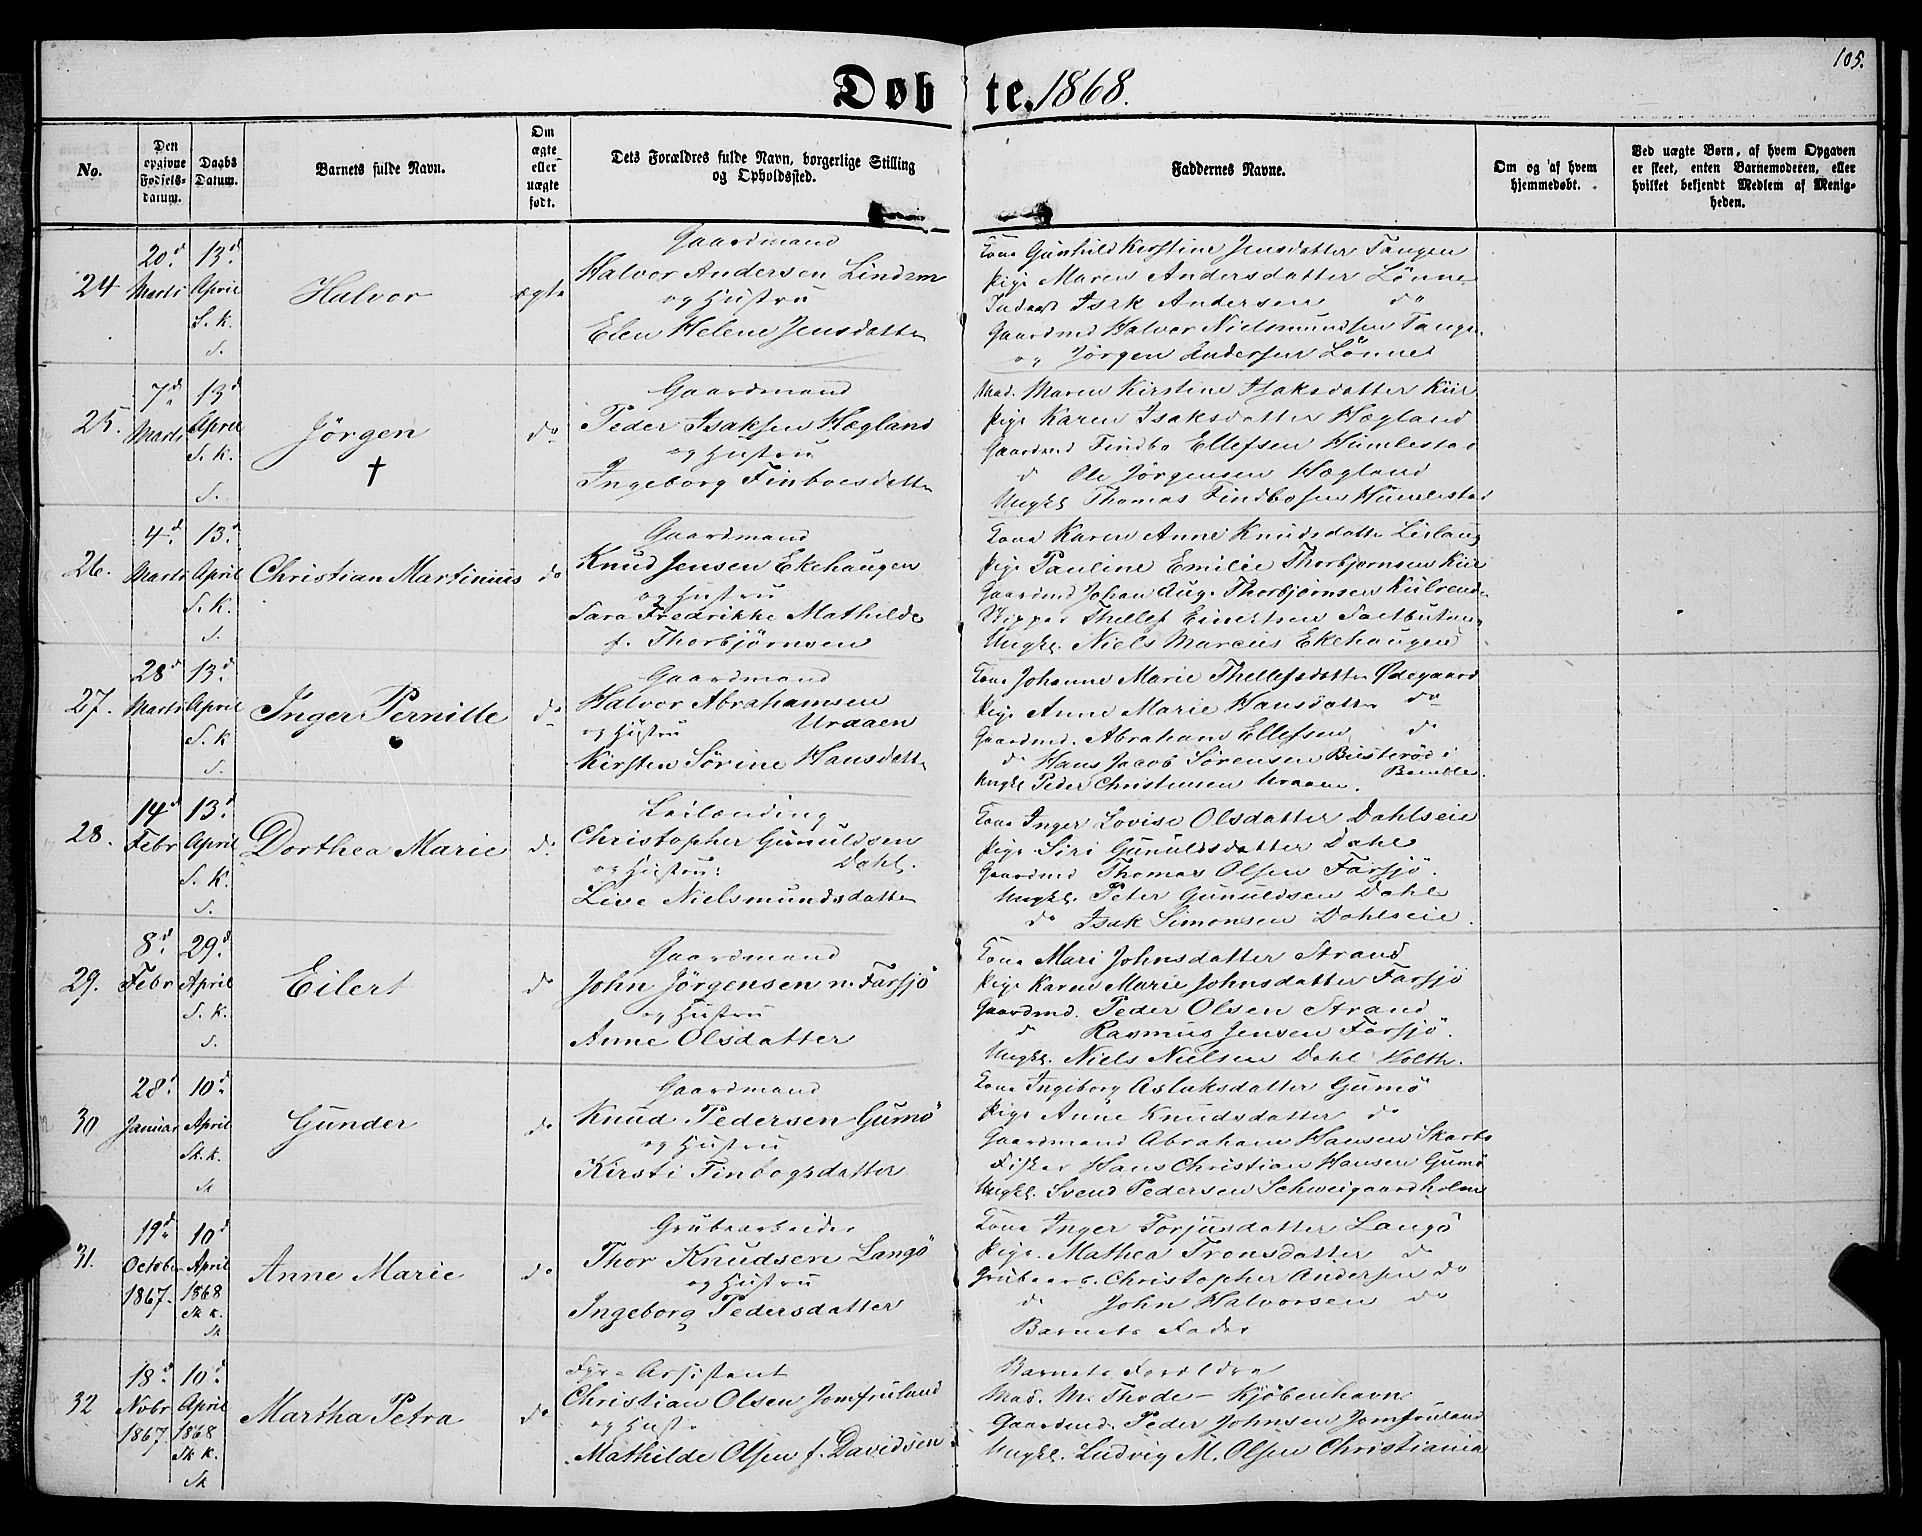 105.
Døbte. 1868.
No.
Den opgivne Fødsels-datum.
Daabs Datum.
Barnets fulde Navn.
Om ægte eller uægte født.
Dets Forældres fulde Navn, borgerlige Stilling og Opholdssted.
Faddernes Navne.
Om og af hvem hjemmedøbt.
Ved uægte Børn, af hvem Opgaven er skeet, enten Barnemoderen, eller hvilket bekjendt Medlem af Menig-heden.
24
20d Marts
13d April S. K. S.
Halvor
ægte
Gaardmand
Halvor Andersen
og Hustru
Elen Helene Jensdatter
Kone Gunhild Kerstine Jensdatter Tangen
Pige Maren Andersdatter Lønne
Isak Andersen do
Gaardmd Halvor Nielsmundsen Tangen
og Jörgen Andersen Lönne
25.
7d Marts
13d April S. K. S.
Jörgen
†
do
Gaardmand
Peder Isaksen Hægland
og Hustru
Ingeborg Finboesdatter
Mad. Maren Kirstine Isaksdatter Kiil
Pige Karen Isaksdatter Hægland
Gaardmd Findbo Ellefsen Humlestad
d Ole Jörgensen Hægland
Ungkl Thomas Findbosen Humlestad
26.
4d Marts
13d April S. K. S.
Christian Martinius
do
Gaardmand
Knud Jensen Ekehaugen
og Hustru
Sara Fredrikke Mathilde
f. Thorbjörnsen
Kone Karen Anne Knudsdatter
Pige Pauline Emilie Thorbjornsen Kiil
Gaardmd Johan Aug. Thorbjörnsen
Thellef
Ungkl. Niels Marcus Ekehaugen
27.
28d Marts
13d April S. K. S.
Inger Pernille
do
Gaardmand
Halvor Abrahamsen
og Hustru Uraaen
Kirsten Sörine Hansdatter
Kone Johanne Marie Thellefsdatter Ødegaard
Pige Anne Marie Hansdatter do
Gaardmd. Abraham Ellefsen do
do Hans Jacob Sörensen Busteröd i
Ungkl Peder Christensen Uraaen. Bamble.
28.
14d Febr
13d April S. K. S.
Dorthea Marie
do
Leilending
Christopher Gunuldsen
og Hustru: Dahl.
Live Nielsmundsdatter
Kone Inger Lovise Olsdatter Dahlseie
Pige Siri Gunuldsdatter Dahl
Gaardmd Thomas Olsen Farsjö.
Ungkl. Peter Gunuldsen Dahl
do Isak Simonsen Dahlseie.
29.
8d Febr
29d April S. K. S.
Eilert
do
Gaardmand
John Jörgensen n. Farsjö
og Hustru
Anne Olsdatter
Kone Mari Johnsdatter Strand
Pige Karen Marie Johnsdatter Farsjö
Gaardmd. Peder Olsen Strand
d Rasmus Jensen Farsjö.
Ungkl. Niels Nielsen Dahl Holth.
30
28d Januar
10d April Sk. K. Sk
Gunder
do
Gaardmand
Knud Pedersen Gumö
og Hustru
Kirsti Finbogsdatter
Kone Ingeborg Aslaksdatter Gumö
Pige Anne Knudsdatter do
Gaardmand Abraham Hansen
Fisker Hans Christian Hansen Gumö
Ungkl. Svend Pedersen Schweigaardholm
31.
19d October 1867.
10d April 1868 Sk K. Sk
Anne Marie
do
Grubearbeider
Thor Knudsen Langö
og Hustru
Ingeborg Pedersdatter
Kone Inger Torjusdatter Langö
Pige. Mathea Tronsdatter do
Grubearb. Christopher Andersen do
do John Halvorsen do
Barnets Fader
32
18d Novbr 1867
10d April 1868 Sk K. Sk
Martha Petra
do
Fyr-Assistent
Christian Olsen Jomfruland
og Hustr.
Mathilde Olsen f. Davidsen
Barnets Forældre
Mad. M. Thode - Kjöbenhavn
Gaardmd. Peder Johnsen Jomfruland
Ungkl. Ludvig M. Olsen Christiania